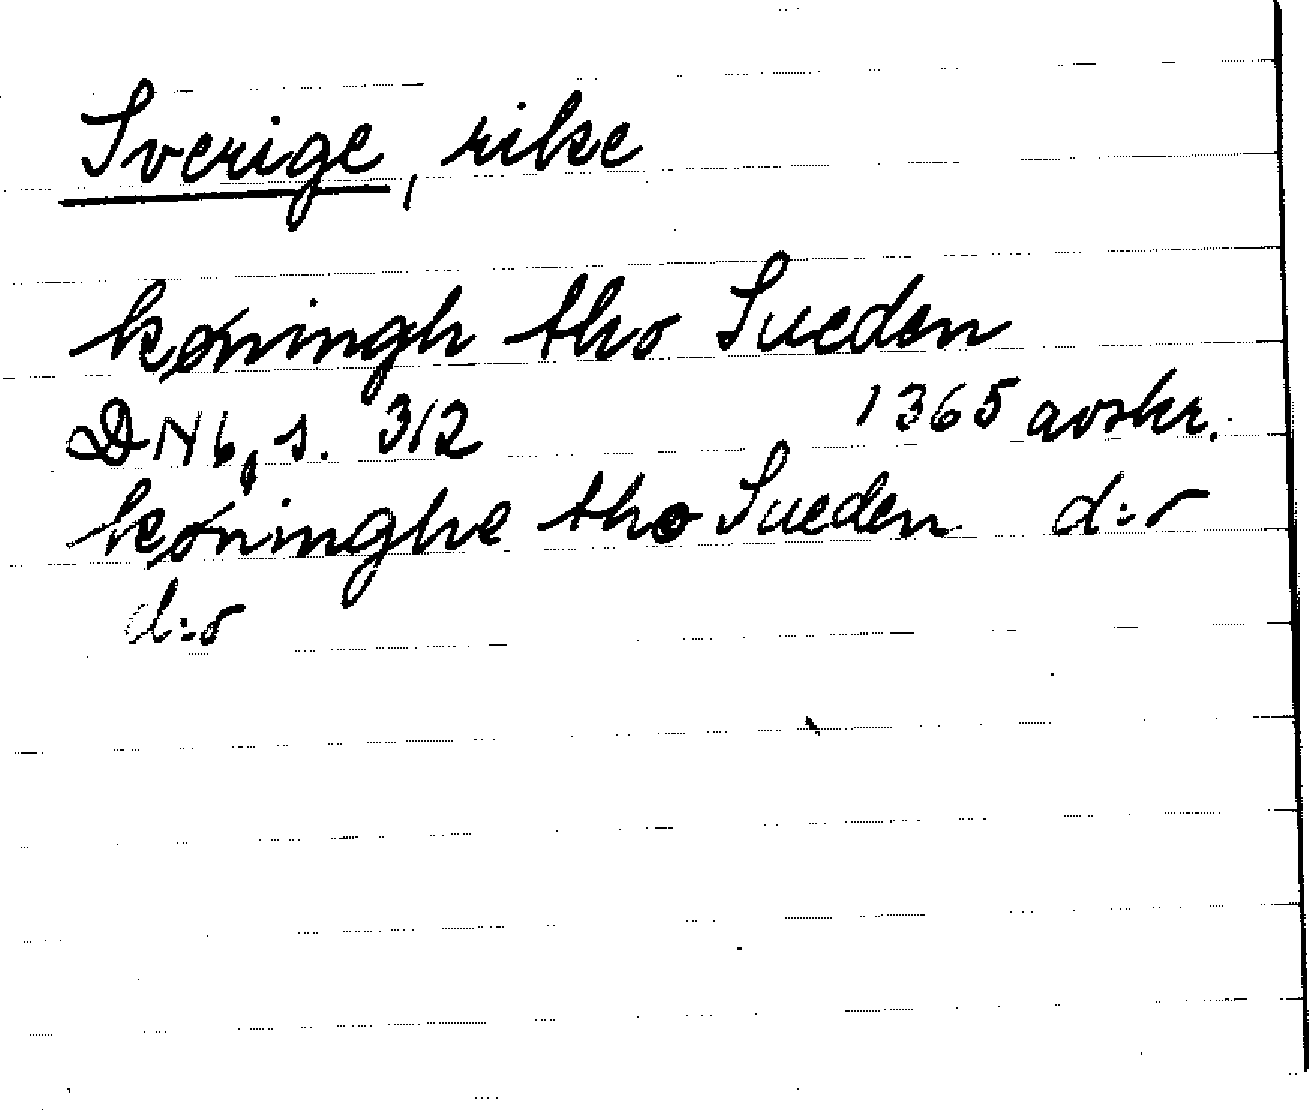 Sverige, rike
køningh tho Sueden
DN 6, s. 312 1365 avskr.
køninghe tho Sueden d:o
d:o